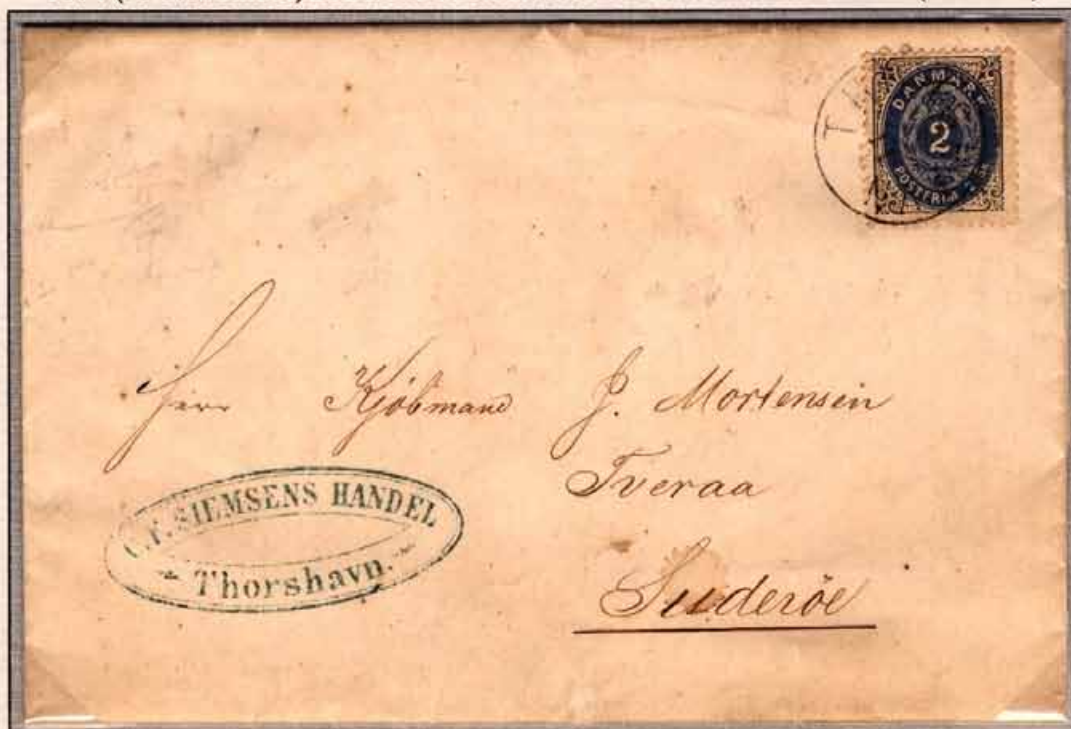 DANMARK
2
POSTFRIM
Herr Kjöbmand J. Mortensen
Tveraa
Suderöe
F. SIEMSENS HANDEL
Thorshavn.